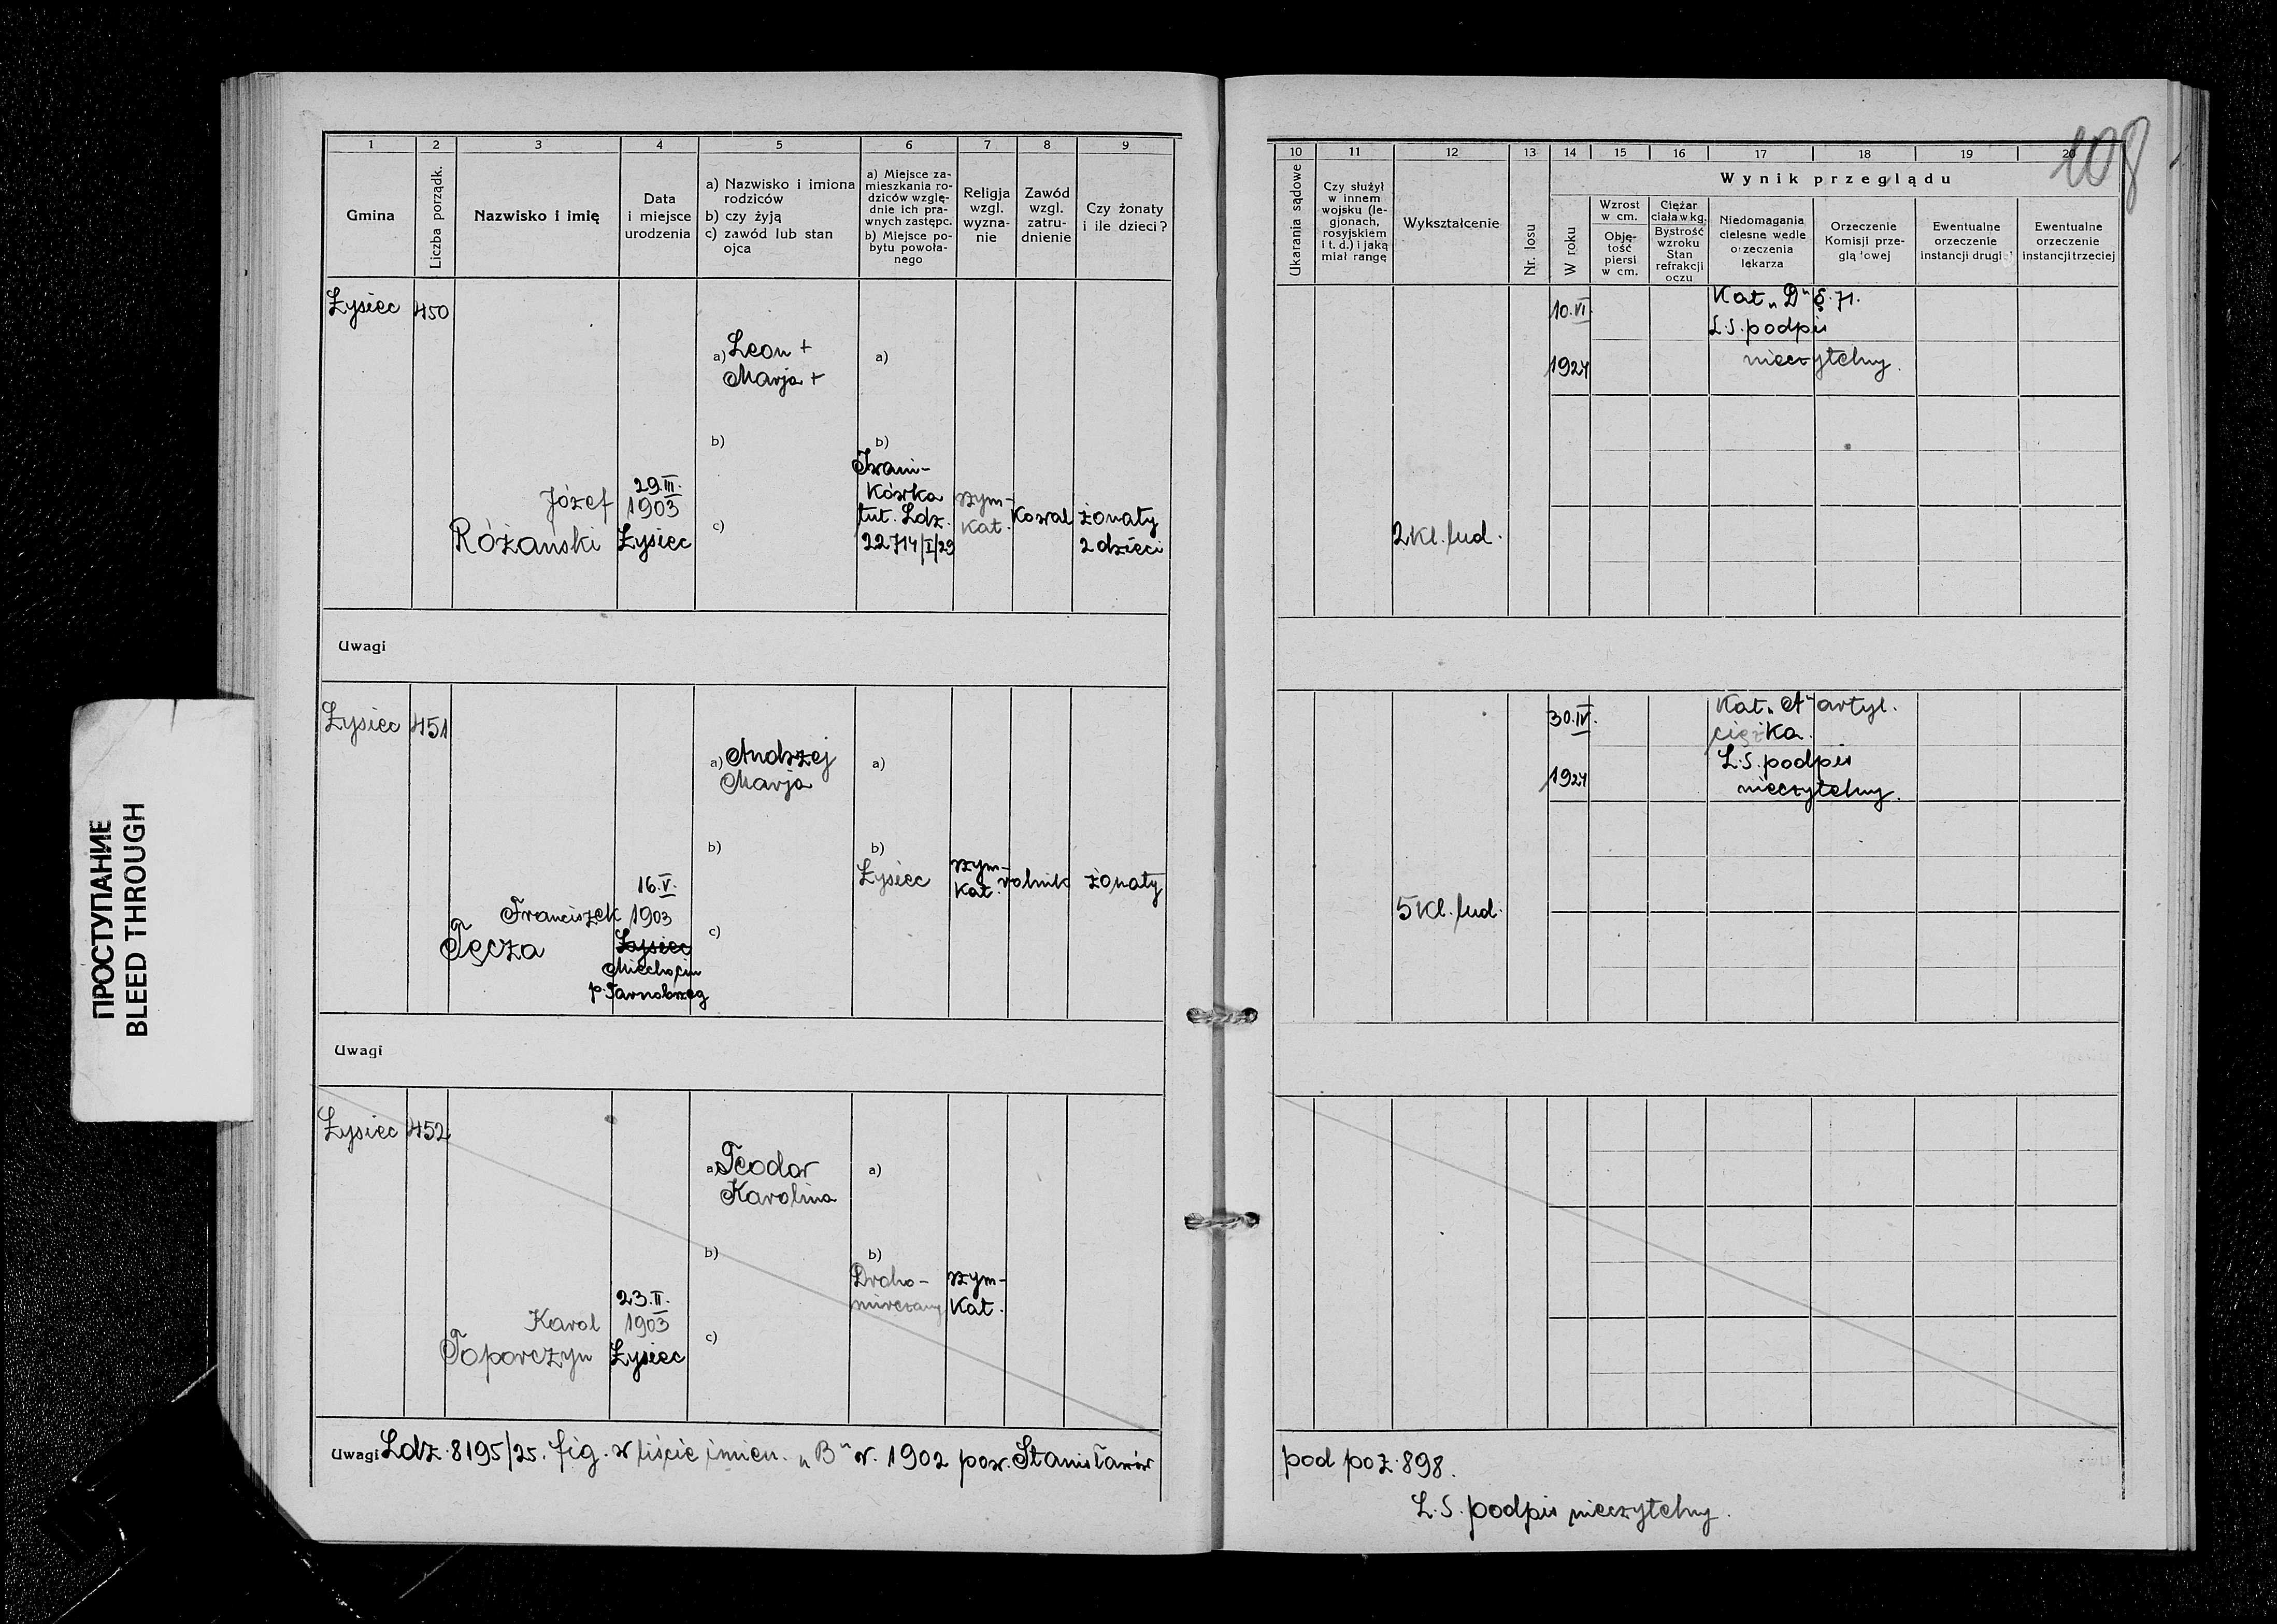 108
1 2 3 4 5 6 7 8 9
Gmina
Liczba porządk.
Nazwisko i imię
Data
i miejsce
urodzenia
a) Nazwisko i imiona
rodziców
b) czy żyją
c) zawód lub stan
ojca
a) Miejsce za-
mieszkania ro-
dziców wzglę-
dnie ich pra-
wnych zastępc.
b) Miejsce po-
bytu powoła-
nego
Religja
wzgl.
wyzna-
nie
Zawód
wzgl.
zatru-
dnienie
Czy żonaty
i ile dzieci?
10 11 12 13 14 15 16 17 18 19 20
Ukarania sądowe
Czy służył
w innem
wojsku (le-
gjonach,
rosyjskiem
i t. d.) i jaką
miał rangę
Wykształcenie
Nr. losu
Wynik przeglądu
W roku
Wzrost
w cm.
Obję-
tość
piersi
w cm.
Ciężar
ciała w kg.
Bystrość
wzroku
Stan
refrakcji
oczu
Niedomagania
cielesne wedle
orzeczenia
lekarza
Orzeczenie
Komisji prze-
glą owej
Ewentualne
orzeczenie
instancji drugie
Ewentualne
orzeczenie
instancji trzeciej
Łysiec 450
Józef
Różański
29.III.
1903
Łysiec
a) Leon +
Marja +
b)
c)
a)
b)
Iwani-
kówka
tut. Ldz.
22714/I/29
rzym-
kat.
kowal
żonaty
2 dzieci
2 kl. lud.
10.VI.
1924
Kat „D" §. 71.
L.S. podpis
nieczytelny.
Uwagi
Łysiec 451
Franciszek
Tęcza
16.V.
1903
Łysiec
Miechocin
p. Tarnobrzeg
a) Andrzej
Marja
b)
c)
a)
b)
Łysiec
rzym-
kat.
rolnik
żonaty
5 kl. lud.
30.IV.
1924
Kat. „A" artyl.
ciężka.
L.S. podpis
nieczytelny.
Uwagi
Łysiec 452
Karol
Toporczyn
23.II.
1903
Łysiec
a) Teodor
Karolina
b)
c)
a)
b)
Droho-
mirczany
rzym-
kat.
Uwagi Ldz. 8195/25. fig. w liście imien. „B" r. 1902 pow. Stanisławów
pod poz. 898.
L.S. podpis nieczytelny.
ПРОСТУПАНИЕ
BLEED THROUGH